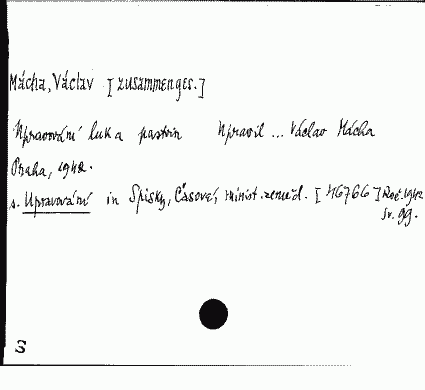 Mácha, Václav [zusammenges.]
Upravování luk a pastvin Upravil ... Václav Mácha
Praha, 1942.
s. Upravování in Spisky, Časové, minist. zeměd. [46766] Roč. 1942
sv. 99.
S